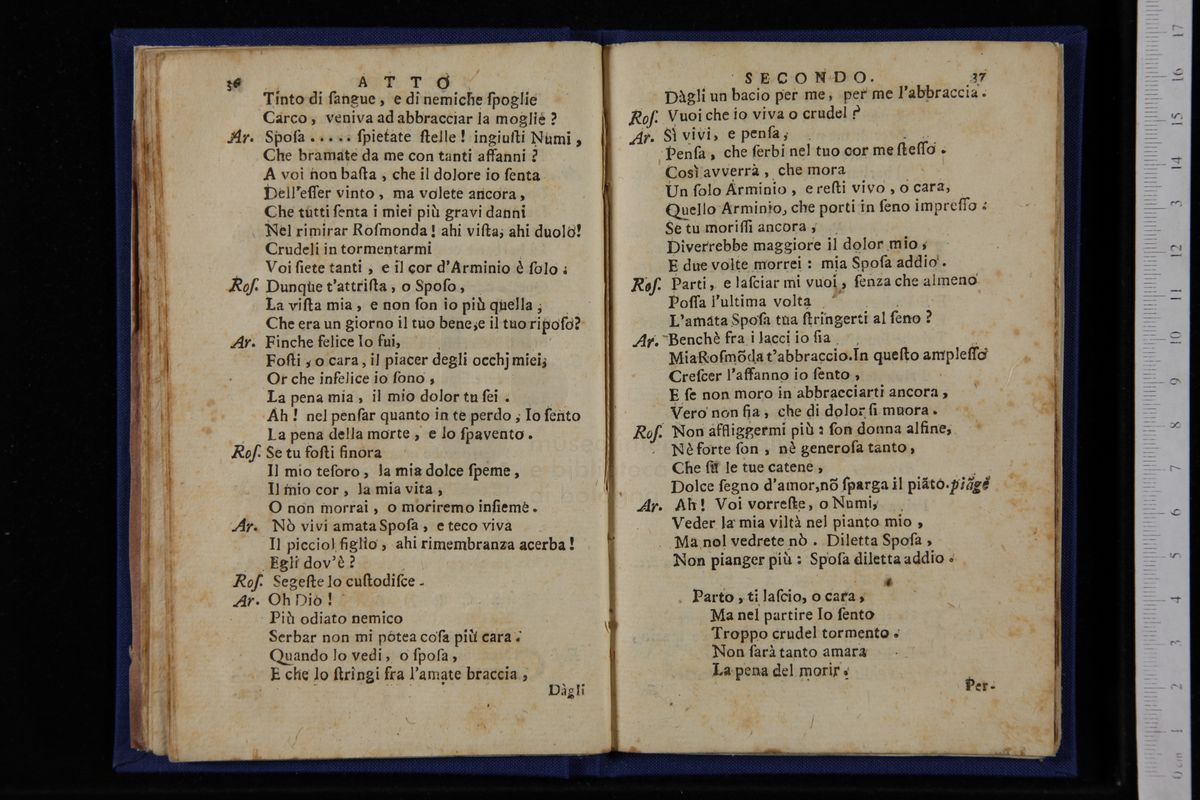 36 ATTO
Tinto di ſangue, e di nemiche ſpoglie
Carco, veniva ad abbracciar la moglie?
Ar. Spoſa ..... ſpietate ſtelle! ingiuſti Numi,
Che bramate da me con tanti affanni?
A voi non baſta, che il dolore io ſenta
Dell'eſſer vinto, ma volete ancora,
Che tutti ſenta i miei più gravi danni
Nel rimirar Roſmonda! ahi viſta, ahi duolo!
Crudeli in tormentarmi
Voi ſiete tanti, e il cor d'Arminio è ſolo.
Roſ. Dunque t'attriſta, o Spoſo,
La viſta mia, e non ſon io più quella,
Che era un giorno il tuo bene,e il tuo ripoſo?
Ar. Finche felice Io fui,
Foſti, o cara, il piacer degli occhj miei;
Or che infelice io ſono,
La pena mia, il mio dolor tu ſei.
Ah! nel penſar quanto in te perdo, Io ſento
La pena della morte, e lo ſpavento.
Roſ. Se tu foſti finora
Il mio teſoro, la mia dolce ſpeme,
Il mio cor, la mia vita,
O non morrai, o moriremo inſieme.
Ar. Nò vivi amata Spoſa, e teco viva
Il picciol figlio, ahi rimembranza acerba!
Egli dov'è?
Roſ. Segeſte lo cuſtodiſce.
Ar. Oh Dio!
Più odiato nemico
Serbar non mi potea coſa più cara.
Quando lo vedi, o ſpoſa,
E che lo ſtringi fra l'amate braccia,
Dàgli
SECONDO. 37
Dàgli un bacio per me, per me l'abbraccia.
Roſ. Vuoi che io viva o crudel?
Ar. Sì vivi, e penſa,
Penſa, che ſerbi nel tuo cor me ſteſſo.
Così avverrà, che mora
Un ſolo Arminio, e reſti vivo, o cara,
Quello Arminio, che porti in ſeno impreſſo.
Se tu moriſſi ancora,
Diverrebbe maggiore il dolor mio,
E due volte morrei: mia Spoſa addio.
Roſ. Parti, e laſciar mi vuoi, ſenza che almeno
Poſſa l'ultima volta
L'amata Spoſa tua ſtringerti al ſeno?
Ar. Benchè fra i lacci io ſia
Mia Roſmõda t'abbraccio. In queſto ampleſſo
Creſcer l'affanno io ſento,
E ſe non moro in abbracciarti ancora,
Vero non ſia, che di dolor ſi muora.
Roſ. Non affliggermi più: ſon donna alfine,
Nè forte ſon, nè generoſa tanto,
Che ſu le tue catene,
Dolce ſegno d'amor,nõ ſparga il piãto. piãge
Ar. Ah! Voi vorreſte, o Numi,
Veder la mia viltà nel pianto mio,
Ma nol vedrete nò. Diletta Spoſa,
Non pianger più: Spoſa diletta addio.
Parto, ti laſcio, o cara,
Ma nel partire Io ſento
Troppo crudel tormento.
Non ſarà tanto amara
La pena del morir.
Per-